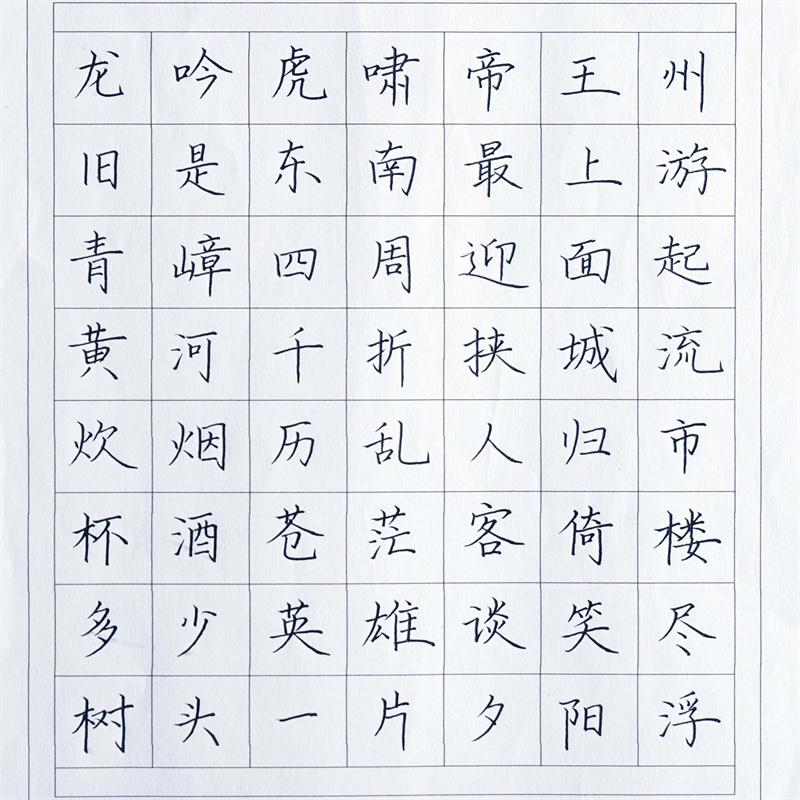 龙吟虎啸帝王州
旧是东南最上游
青嶂四周迎面起
黄河千折挟城流
炊烟历乱人归市
杯酒苍茫客倚楼
多少英雄谈笑尽
树头一片夕阳浮